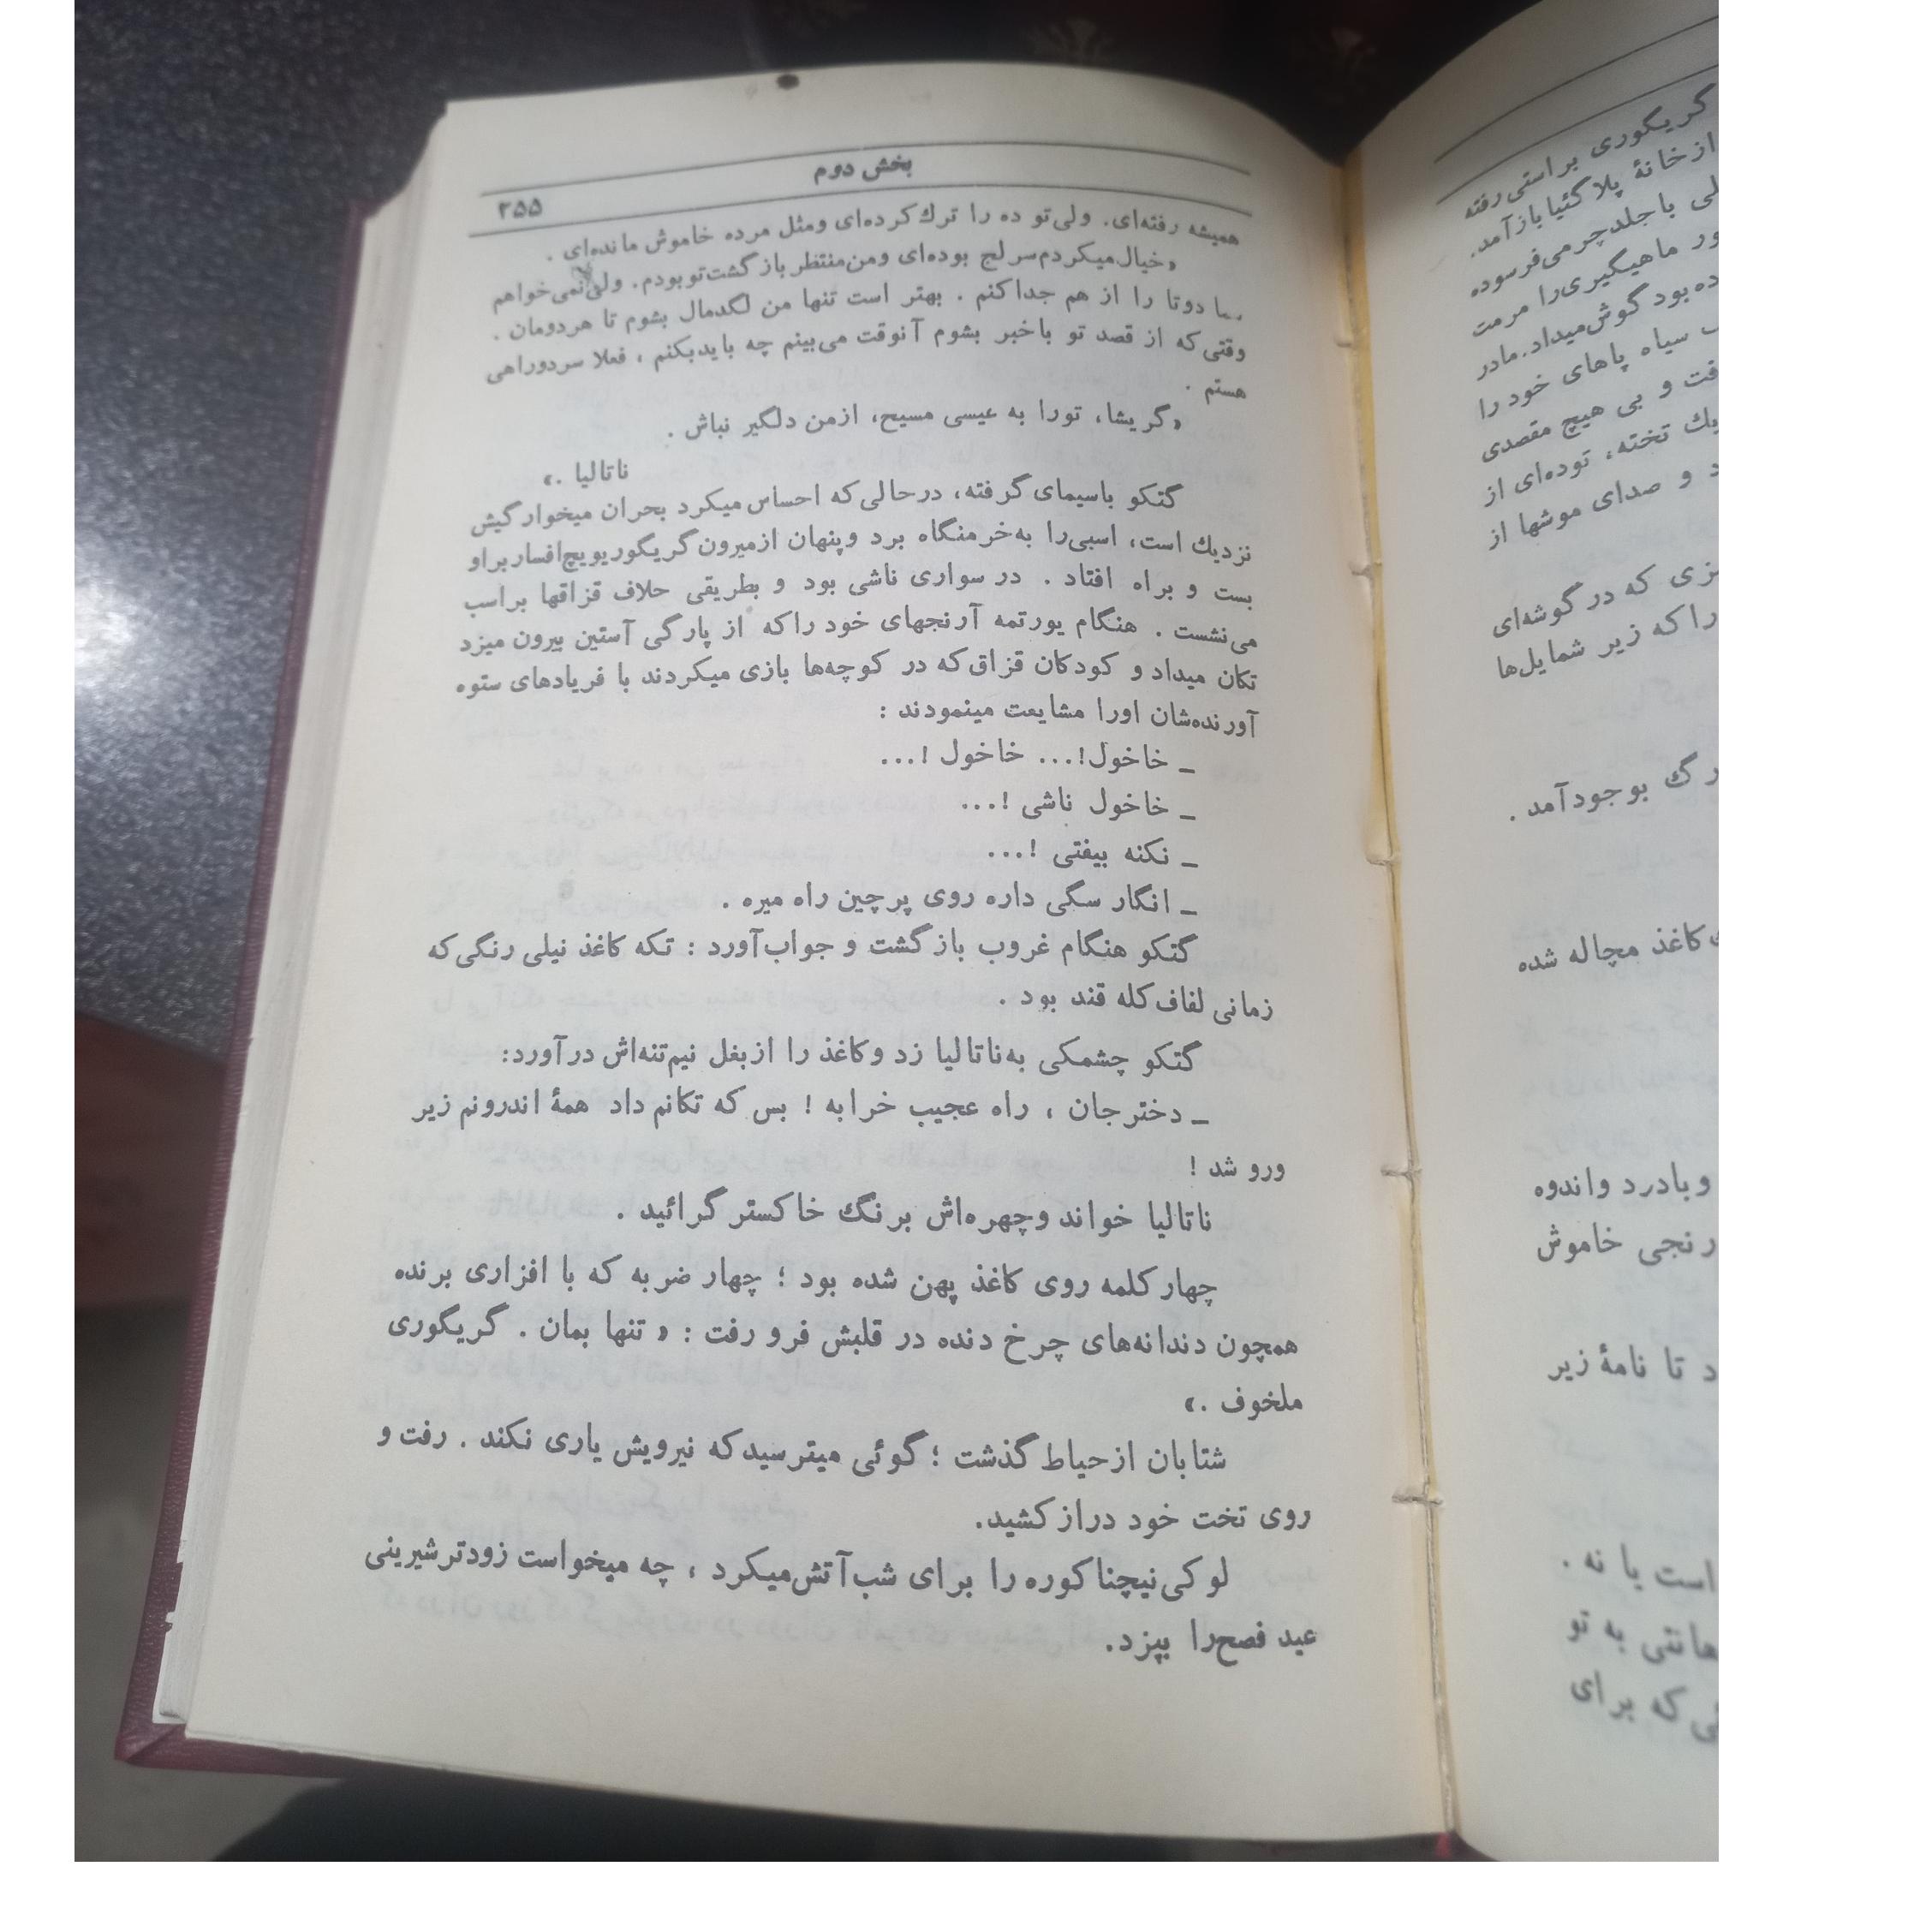 بخش دوم
۲۵۵
همیشه رفته‌ای. ولی‌تو ده را ترك کرده‌ای ومثل مرده خاموش مانده‌ای .
«خیال‌میکردم‌سر لج بوده‌ای ومن‌منتظر بازگشت‌توبودم. ولی‌نمی‌خواهم
دوتا را از هم جداکنم . بهتر است تنها من لگدمال بشوم تا هردومان .
وقتی‌که از قصد تو باخبر بشوم آنوقت می‌بینم چه بایدبکنم ، فعلا سردوراهی
هستم .
«گریشا، تورا به عیسی مسیح، ازمن دلگیر نباش .
ناتالیا .»
گتکو باسیمای گرفته، درحالی‌که احساس میکرد بحران میخوارگیش
نزدیك است، اسبی‌را به‌خرمنگاه برد وپنهان ازمیرون‌گریگوریویچ‌افساربراو
بست و براه افتاد . در سواری ناشی بود و بطریقی حلاف قزاقها براسب
می‌نشست . هنگام یورتمه آرنجهای خود راکه از پارگی آستین بیرون میزد
تکان میداد و کودکان قزاق‌که در کوچه‌ها بازی میکردند با فریادهای ستوه
آورنده‌شان اورا مشایعت مینمودند :
_ خاخول!... خاخول !...
_ خاخول ناشی !...
_ نکنه بیفتی !...
_ انگار سگی داره روی پرچین راه میره .
گتکو هنگام غروب بازگشت و جواب‌آورد : تکه کاغذ نیلی رنگی‌که
زمانی لفاف‌کله قند بود .
گتکو چشمکی به‌ناتالیا زد وکاغذ را ازبغل نیم‌تنه‌اش درآورد:
_ دخترجان ، راه عجیب خرابه ! بس که تکانم داد همهٔ اندرونم زیر
ورو شد !
ناتالیا خواند وچهره‌اش برنگ خاکستر گرائید .
چهارکلمه روی کاغذ پهن شده بود ؛ چهار ضربه که با افزاری برنده
همچون دندانه‌های چرخ دنده در قلبش فرو رفت : « تنها بمان . گریگوری
ملخوف .»
شتابان ازحیاط گذشت ؛ گوئی میترسیدکه نیرویش یاری نکند . رفت و
روی تخت خود درازکشید.
لوکی‌نیچناکوره را برای شب‌آتش‌میکرد ، چه میخواست زودترشیرینی
عید فصح‌را بپزد.
گریگوری براستی رفته
ازخانهٔ پلاگئیابازآمد.
باجلدچرمی‌فرسوده
ماهیگیری‌را مرمت
بود گوش‌میداد.مادر
سیاه پاهای خود را
و بی هیچ مقصدی
تخته، توده‌ای از
و صدای موشها از
که در گوشه‌ای
راکه زیر شمایل‌ها
بوجودآمد .
کاغذ مچاله شده
وبادرد واندوه
رنجی خاموش
تا نامهٔ زیر
است یا نه .
به تو
که برای